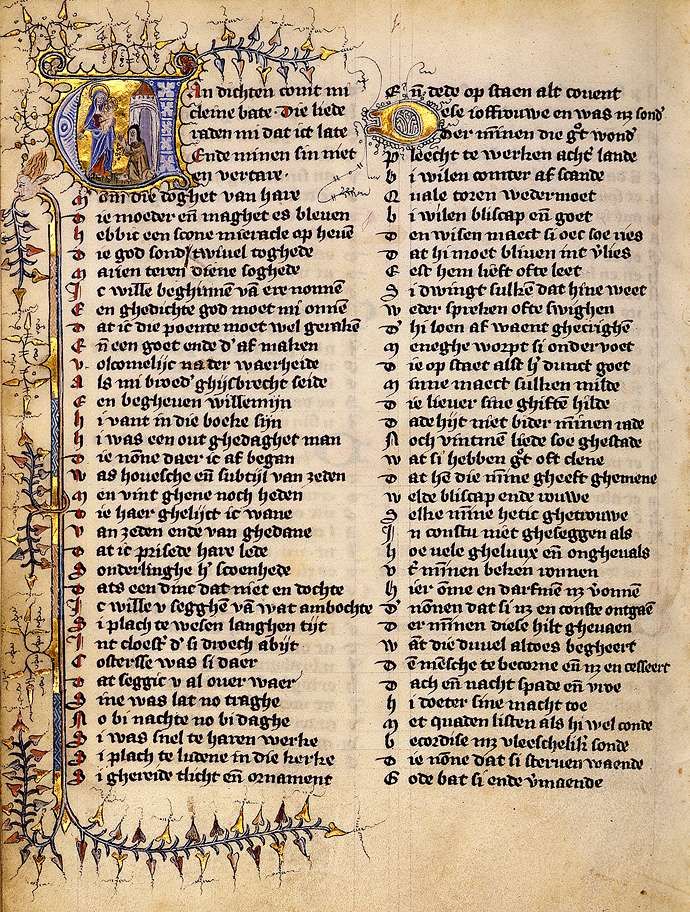 Van dichten comt mi
cleine bate · Die liede
raden mi dat ict late
Ende minen sin niet
en vertare ·
Om die doghet van hare
Die moeder eñ maghet es bleuen
Hebbic een scone mieracle op heuē
Die god sond twiuel toghede
Marien teren diene soghede
Ic wille beghinnē vā ere nonnē
Een ghedichte god moet mi onnē
Dat ic die poente moet wel gerakē
Eñ een goet ende d' af maken
Volcomelijc na der waerheide
Als mi broed' ghijsbrecht seide
Een begheuen willemijn
Hi vant in die boeke sijn
Hi was een out ghedaghet man
Die nōne daer ic af began
Was houesche eñ subtijl van zeden
Men vint ghene noch heden
Die haer ghelijct ic wane
Van zeden ende van ghedane
Dat ic prisede hare lede
Sonderlinghe h' scoenhede
Dats een dinc dat niet en dochte
Ic wille v segghē vā wat ambochte
Si plach te wesen langhen tijt
Int cloest' d' si droech abijt
Costersse was si daer
Dat seggic v al ouer waer
Sine was lat no traghe
No bi nachte no bi daghe
Si was snel te haren werke
Si plach te ludene in die kerke
Si ghereide tlicht eñ ornament
Eñ dede op staen alt couent
Dese ioffrouwe en was nz sond'
Der minnen die g°t wond'
Pleecht te werken acht' lande
Bi wilen comter af scande
Quale toren wedermoet
Bi wilen bliscap eñ goet
Den wisen maect si oec soe ries
Dat hi moet bliuen int v'lies
Eest hem lieft ofte leet
Si dwingt sulkē dat hine weet
Weder spreken ofte swighen
D' hi loen af waent ghecrighē
Meneghe worpt si onder voet
Die op staet alst h' dunct goet
Minne maect sulken milde
Die lieuer sine ghiften hilde
Dade hijt niet bider minnen rade
Noch vintmen liede soe ghestade
Wat si hebben g°t oft clene
Dat hē die minne gheeft ghemene
Welde bliscap ende rouwe
Selke minne hetic ghetrouwe
In constu niet gheseggen als
Hoe vele gheluux eñ onghevals
V' minnen beken ronnen
Hier omme en darfmē nz v'onnen
D' nōnen dat si nz en conste ontgaē
Der minnen diese hilt gheuaen
Want die duuel altoes begheert
Dē mensche te becorne eñ nz en cesseert
Dach eñ nacht spade eñ vroe
Hi doeter sine macht toe
Met quaden listen als hi wel conde
Becordise mz vleeschelik' sonde
Die nōne dat si steruen waende
Gode bat si ende v'maende